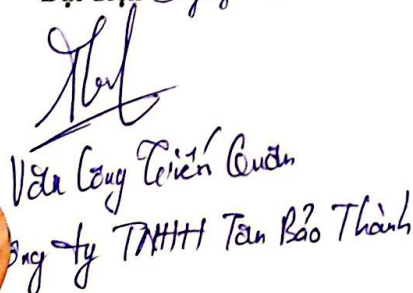 Văn Công Triển Quân
ông ty TNHH Tân Bảo Thành